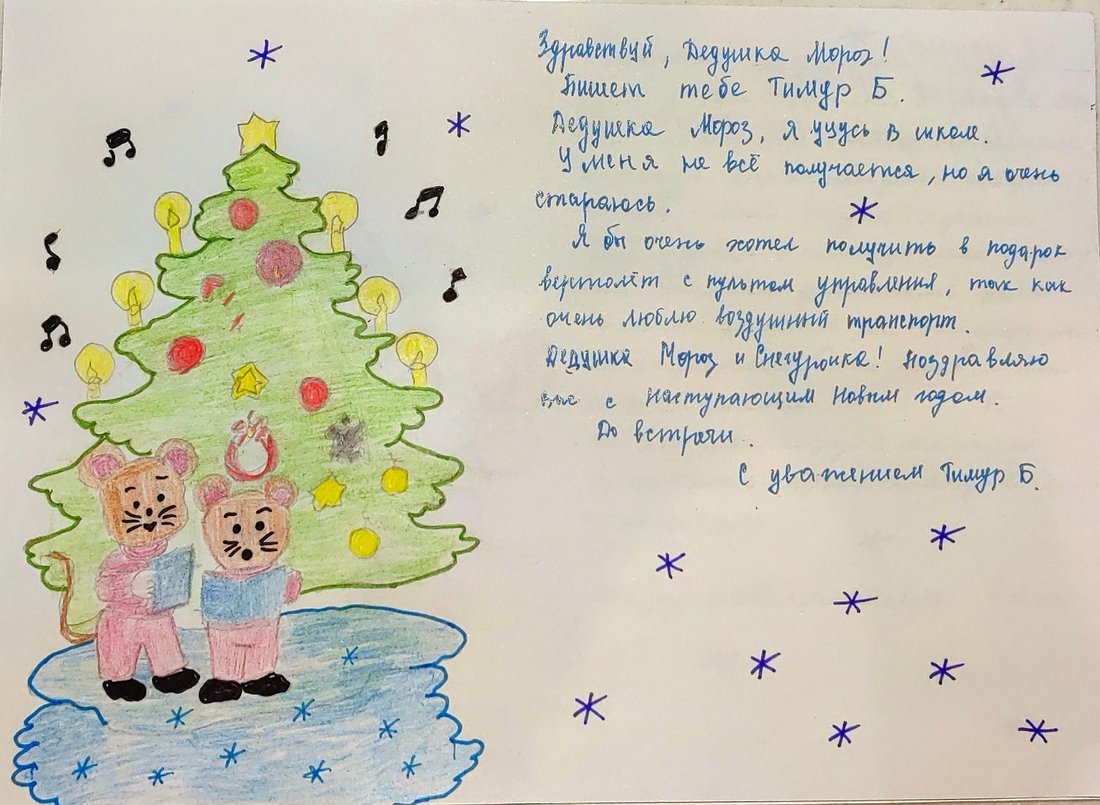 Здравствуй, Дедушка Мороз!
Пишет тебе Тимур Б.
Дедушка Мороз, я учусь в школе.
У меня не всё получается, но я очень
стараюсь.
Я бы очень хотел получить в подарок
вертолёт с пультом управления, так как
очень люблю воздушный транспорт.
Дедушка Мороз и Снегурочка! Поздравляю
вас с наступающим Новым годом.
До встречи.
С уважением Тимур Б.